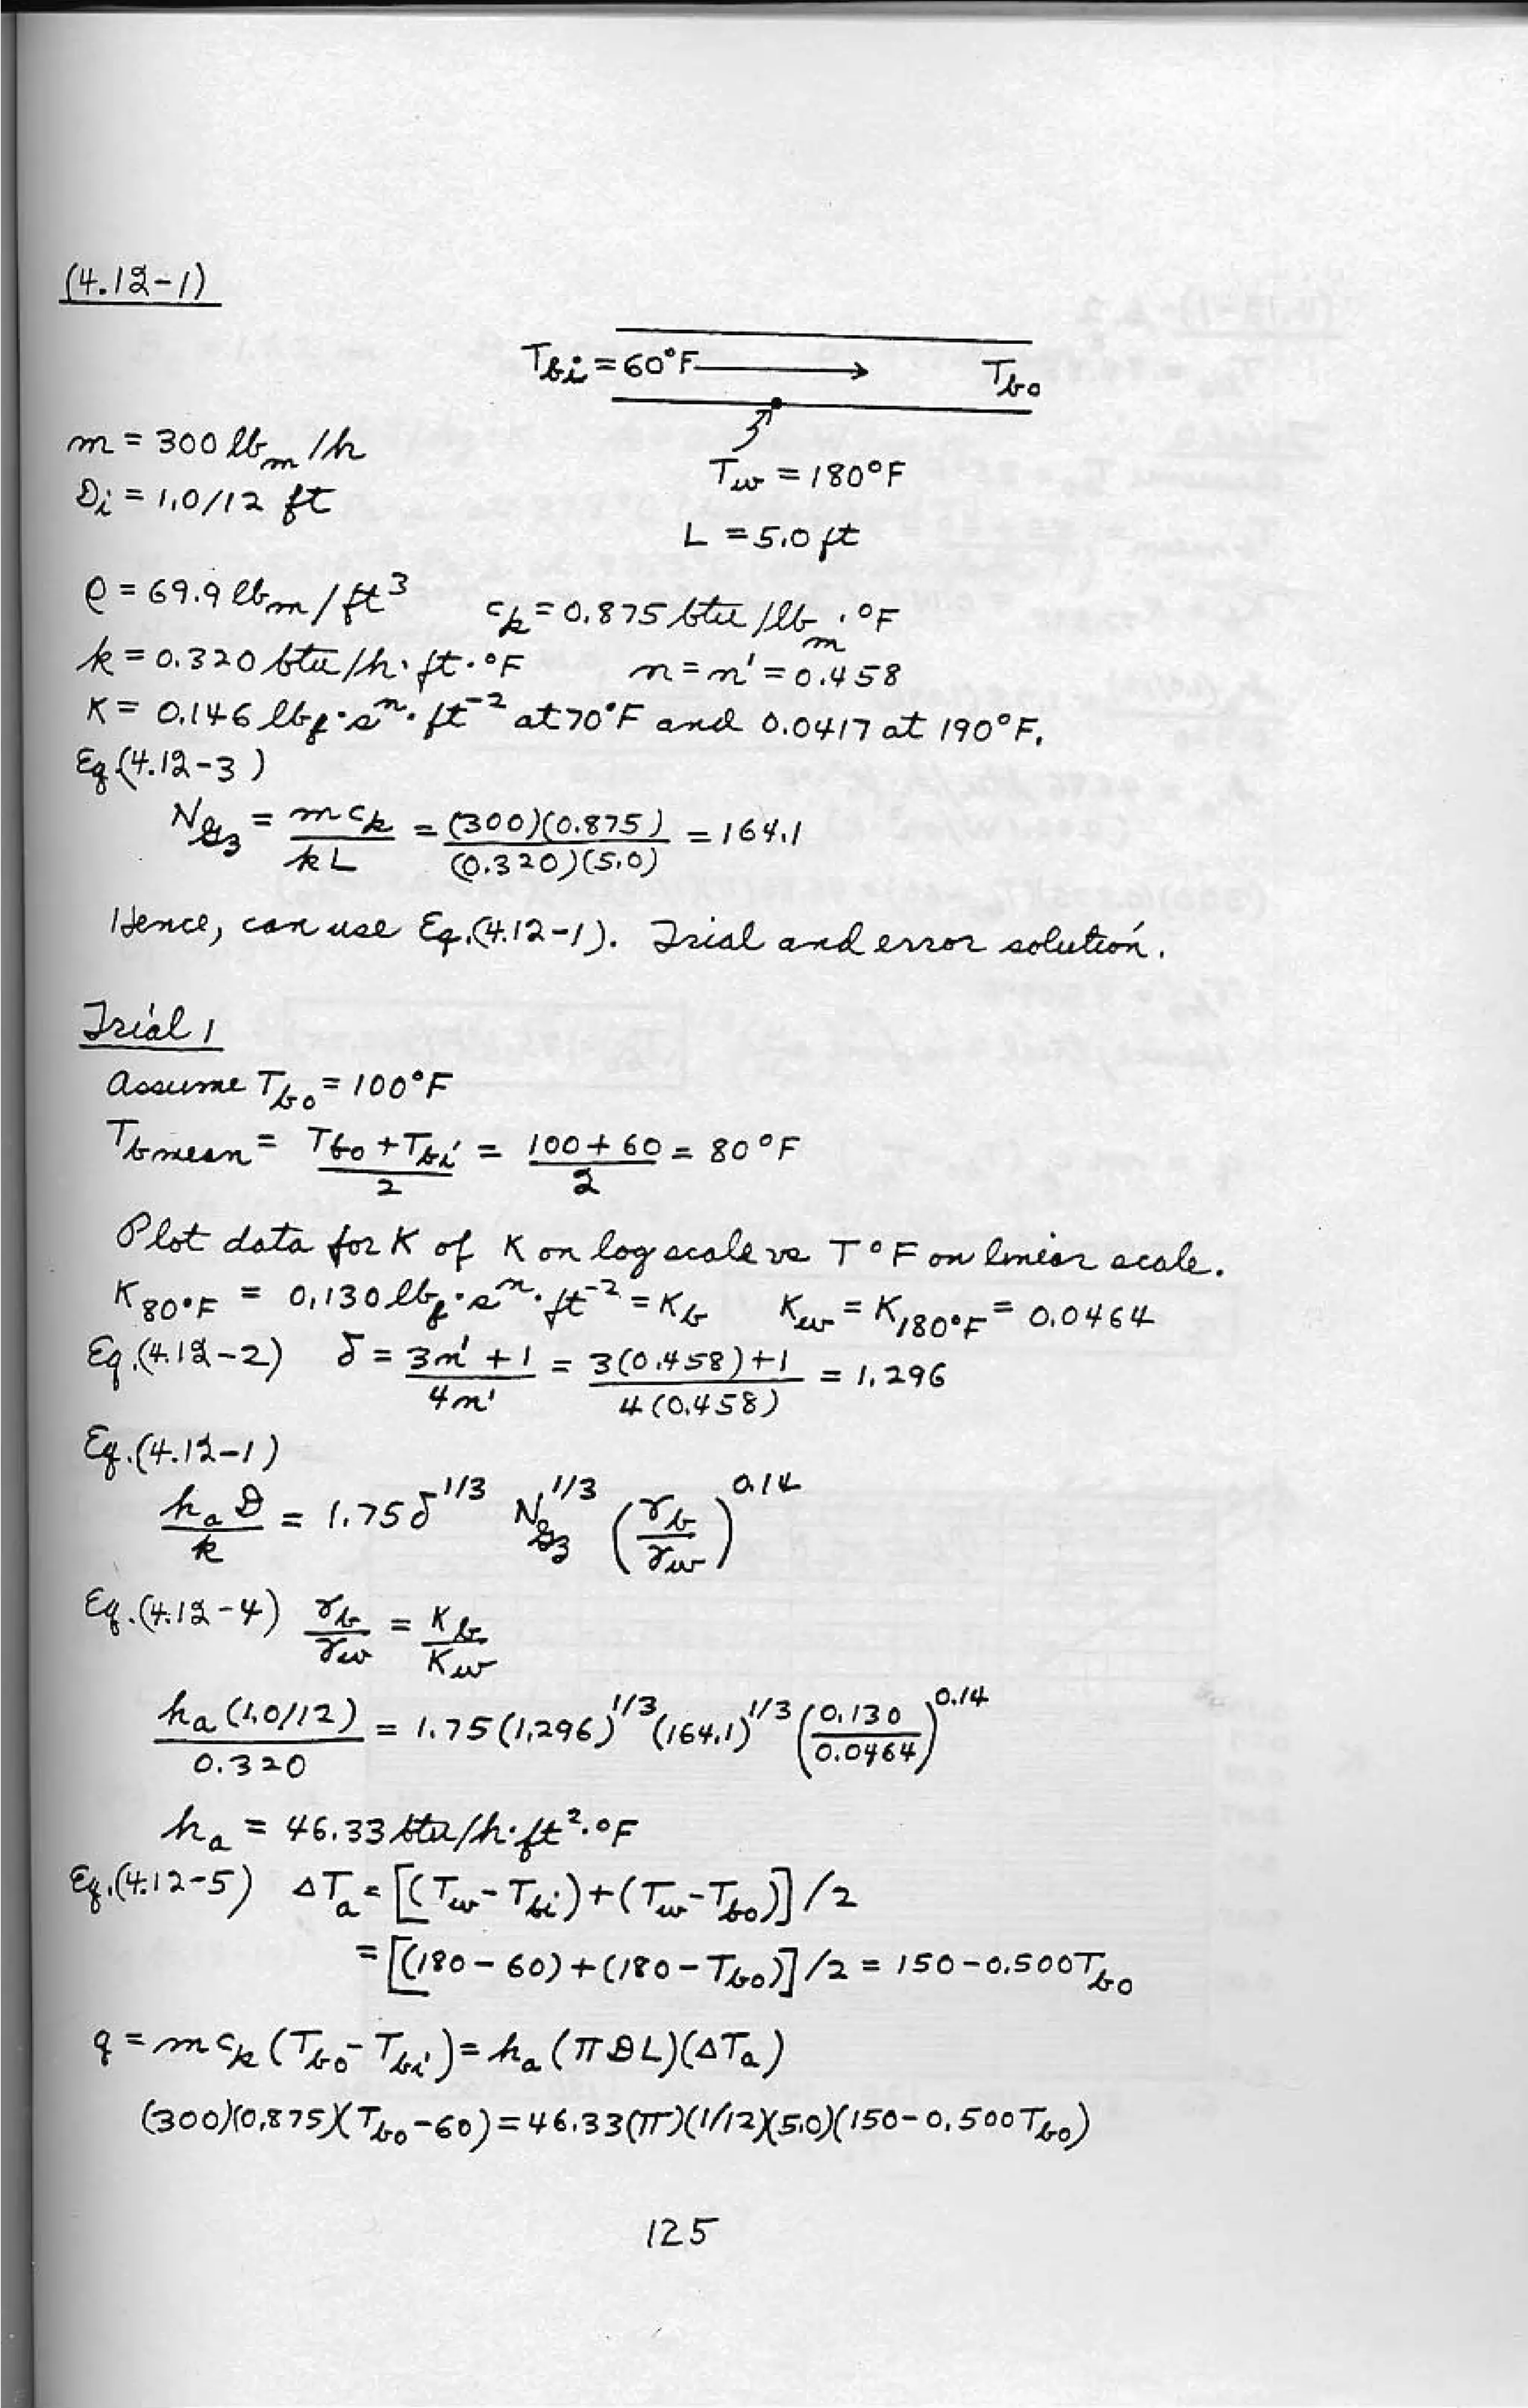 (4.12-1)
Tbi = 60°F → Tbo
m = 300 lbm/h
Tw = 180°F
Di = 1.0/12 ft
L = 5.0 ft
ρ = 69.9 lbm/ft³ cp = 0.875 btu/lbm·°F
k = 0.320 btu/h·ft·°F n = n' = 0.458
K = 0.146 lbf·sⁿ·ft⁻² at 70°F and 0.0417 at 190°F.
Eq.(4.12-3)
NGz = m cp / kL = (300)(0.875) / (0.320)(5.0) = 164.1
Hence, can use Eq.(4.12-1). Trial and error solution.
Trial 1
Assume Tbo = 100°F
Tbmean = (Tbo + Tbi) / 2 = (100 + 60) / 2 = 80°F
Plot data for K of K on log scale vs T°F on linear scale.
K80°F = 0.130 lbf·sⁿ·ft⁻² = Kb Kw = K180°F = 0.0464
Eq.(4.12-2) δ = (3n' + 1) / 4n' = (3(0.458)+1) / 4(0.458) = 1.296
Eq.(4.12-1)
ha D / k = 1.75 δ^1/3 NGz^1/3 (γb/γw)^0.14
Eq.(4.12-4) γb/γw = Kb/Kw
ha(1.0/12) / 0.320 = 1.75(1.296)^1/3 (164.1)^1/3 (0.130/0.0464)^0.14
ha = 46.33 btu/h·ft²·°F
Eq.(4.12-5) ΔTa = [(Tw - Tbi) + (Tw - Tbo)]/2
= [(180 - 60) + (180 - Tbo)]/2 = 150 - 0.500Tbo
q = m cp (Tbo - Tbi) = ha(πDL)(ΔTa)
(300)(0.875)(Tbo - 60) = 46.33(π)(1/12)(5.0)(150 - 0.500Tbo)
125